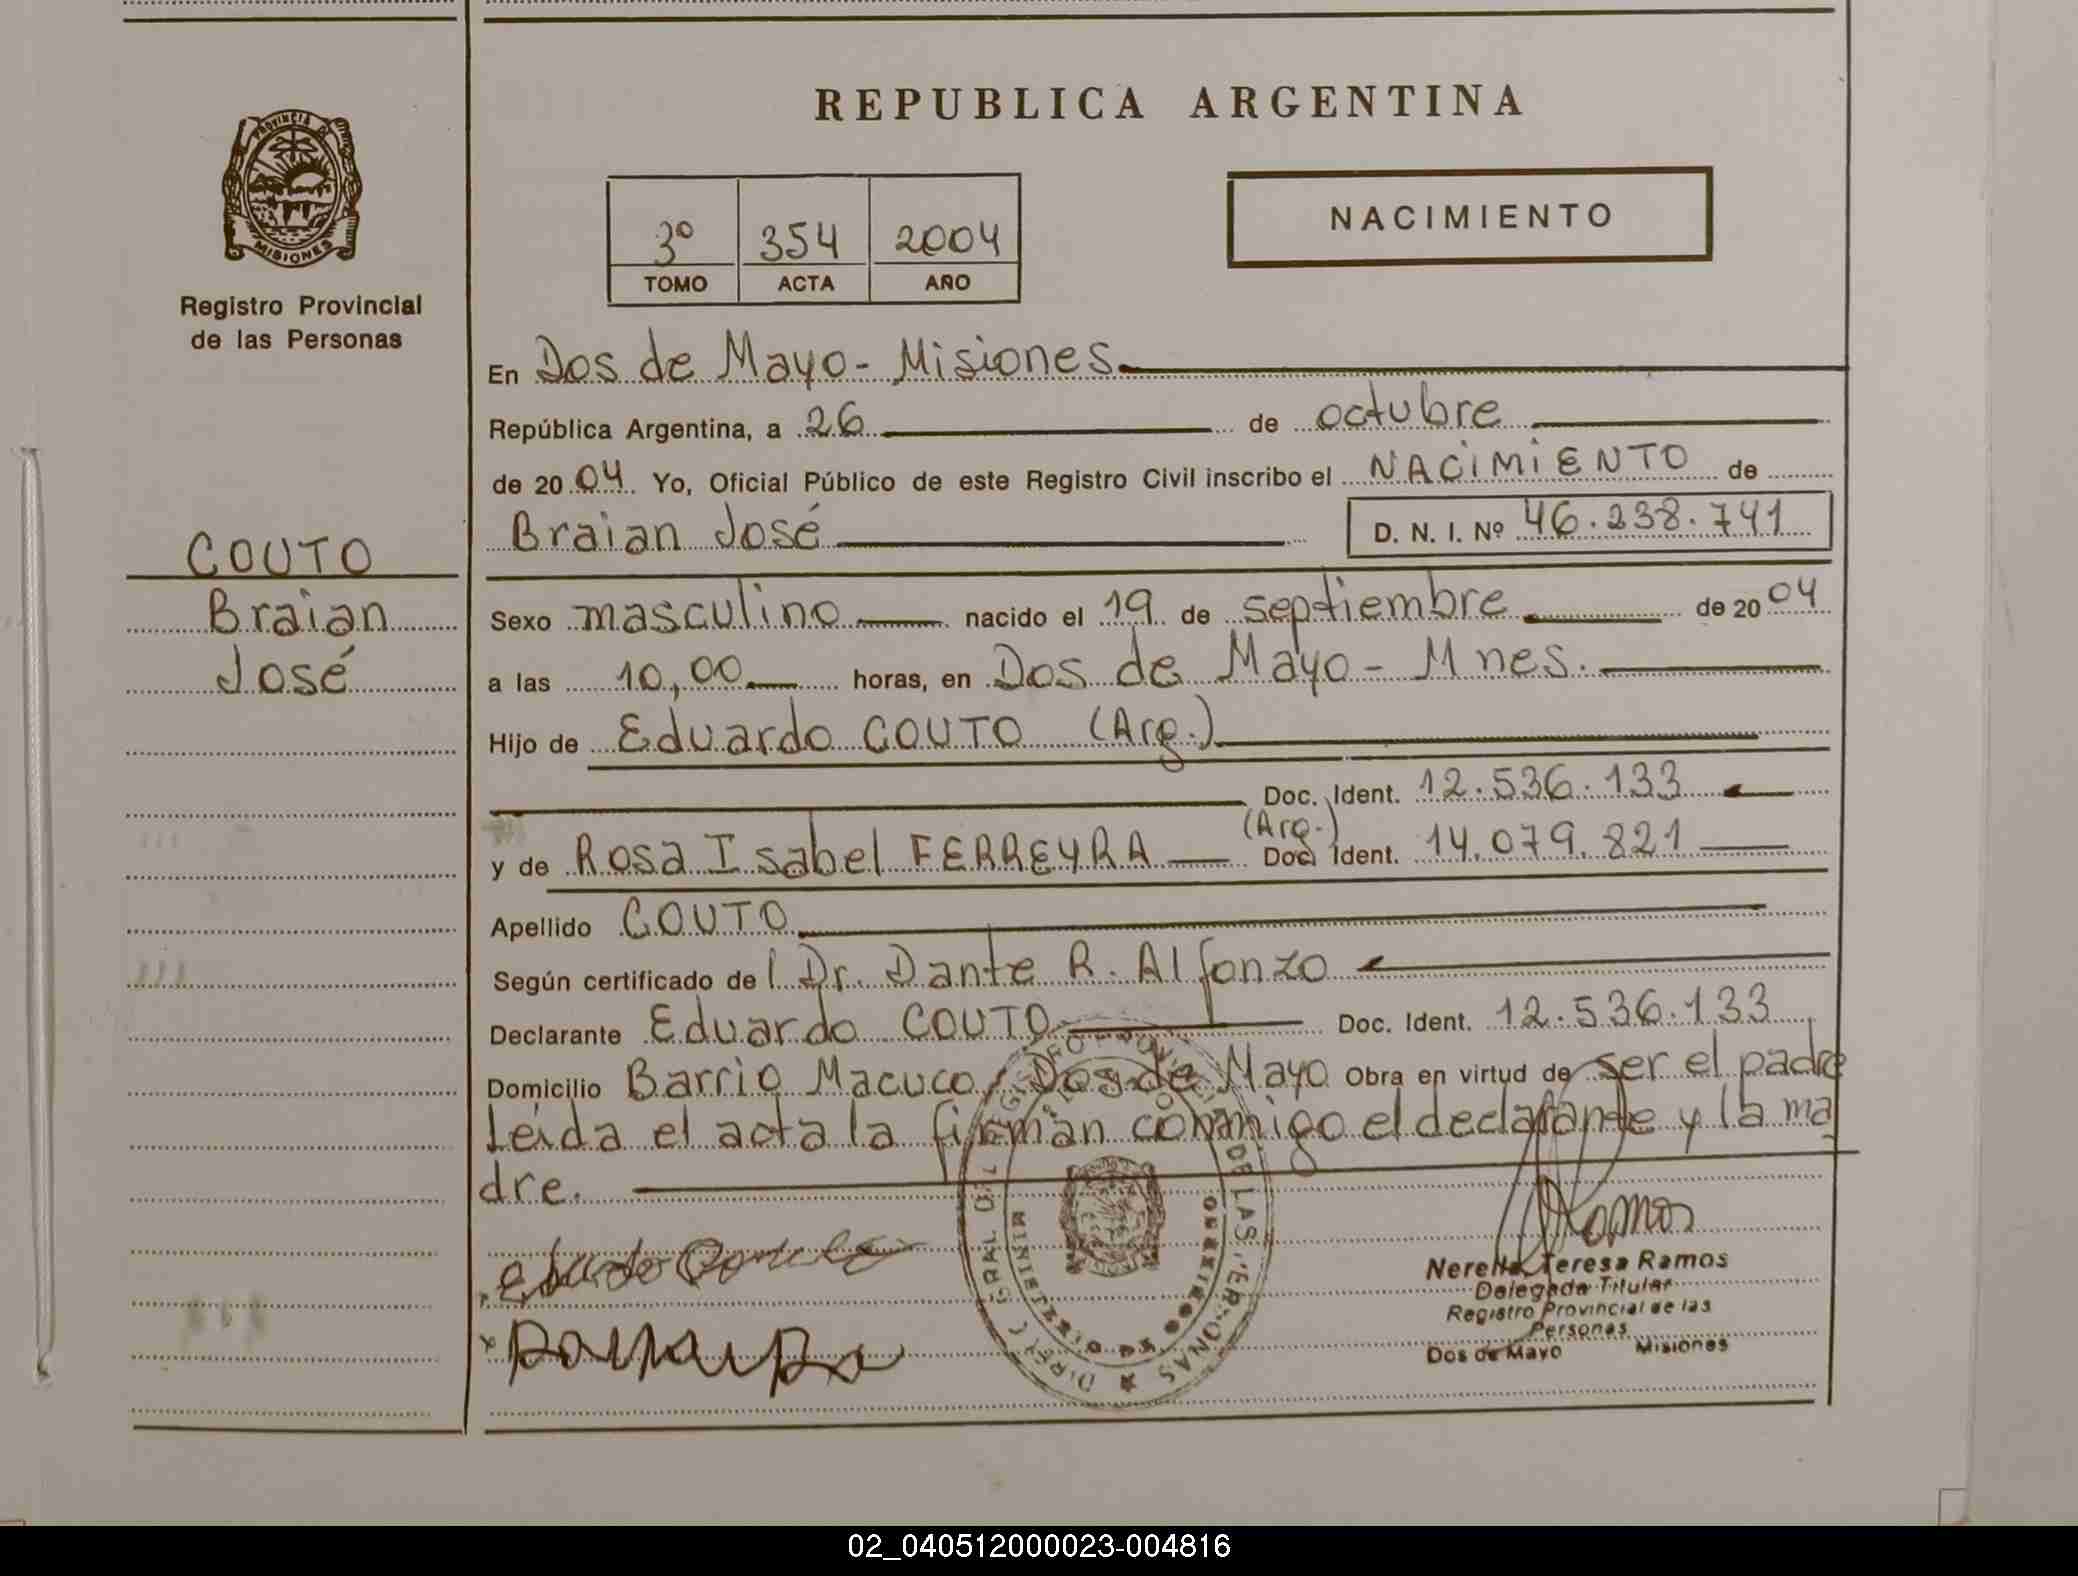 REPUBLICA ARGENTINA
PROVINCIA DE
MISIONES
Registro Provincial
de las Personas
3º 354 2004
TOMO ACTA AÑO
NACIMIENTO
COUTO
Braian
José
En Dos de Mayo - Misiones
República Argentina, a 26 de octubre
de 2004 Yo, Oficial Público de este Registro Civil inscribo el NACIMIENTO de
Braian José D. N. I. Nº 46.238.741
Sexo masculino nacido el 19 de septiembre de 2004
a las 10,00 horas, en Dos de Mayo - Mnes.
Hijo de Eduardo COUTO (Arg.)
Doc. Ident. 12.536.133
(Arg.)
y de Rosa Isabel FERREYRA Doc. Ident. 14.079.821
Apellido COUTO
Según certificado de l Dr. Dante R. Alfonzo
Declarante Eduardo COUTO Doc. Ident. 12.536.133
Domicilio Barrio Macuco / Dos de Mayo Obra en virtud de ser el padre
Leída el acta la firman conmigo el declarante y la ma
dre.
Ramos
Nerella Teresa Ramos
Delegada Titular
Registro Provincial de las
Personas
Dos de Mayo Misiones
02_040512000023-004816